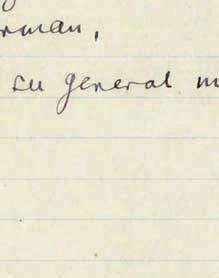 rman,
su general m